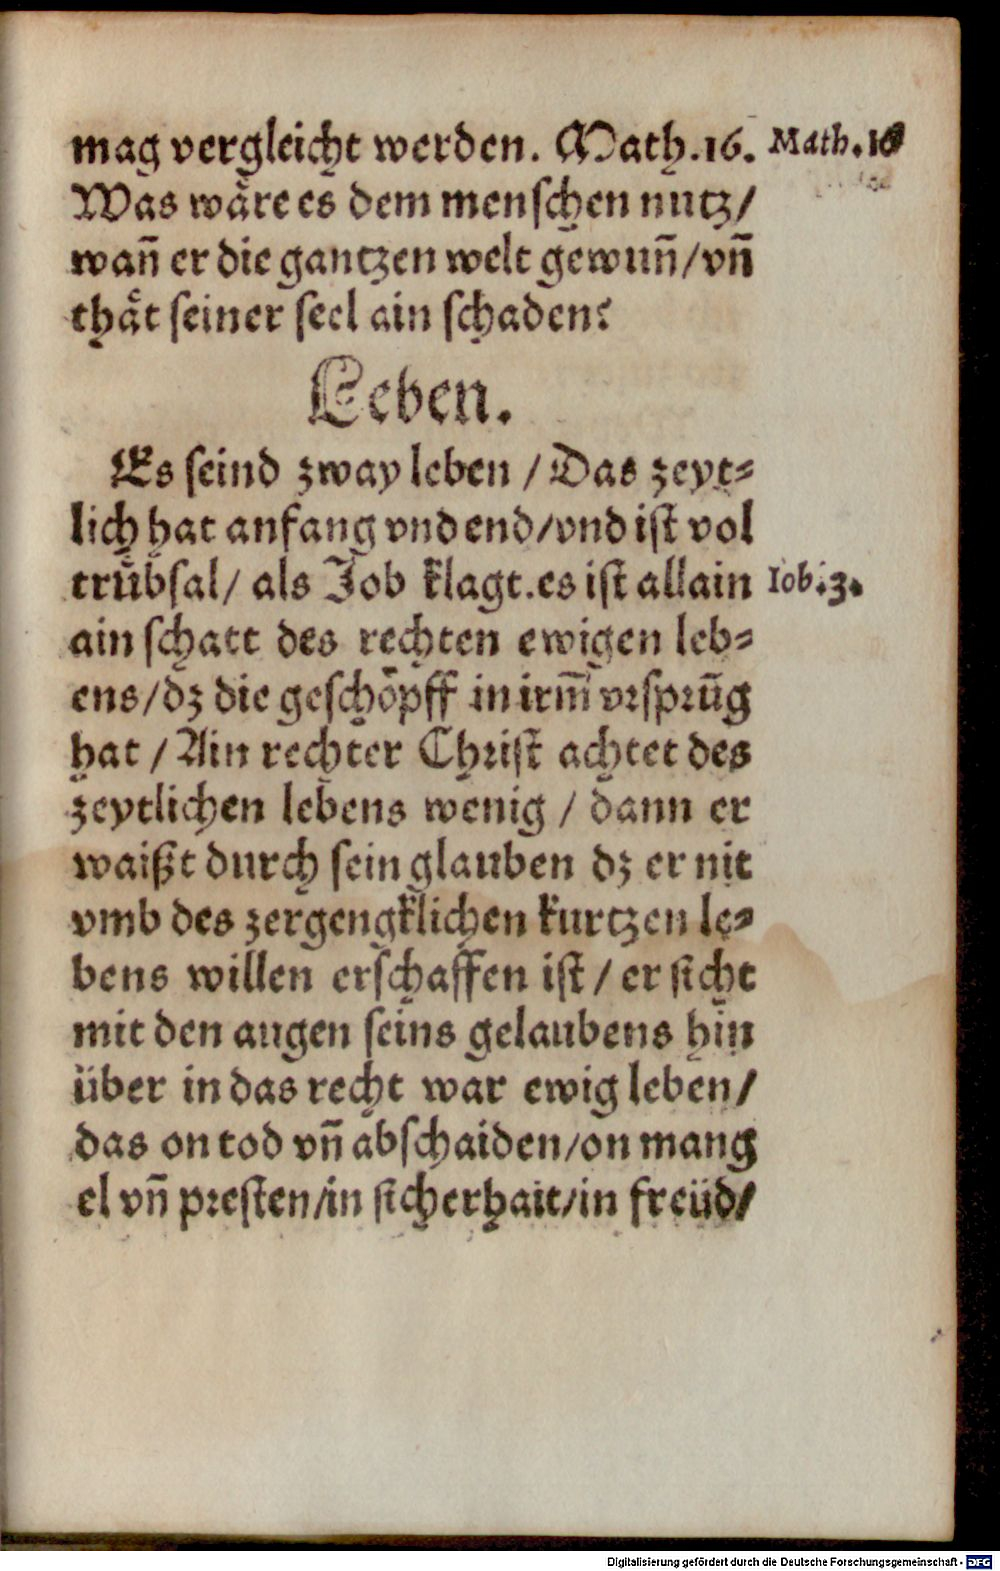 mag vergleicht werden. Math.16. Math.16
Was wäre es dem menschen nutz/
wañ er die gantzen welt gewuñ/vñ
thät seiner seel ain schaden?
Leben.
Es seind zway leben / Das zeyt⸗
lich hat anfang vnd end/vnd ist vol
trübsal/ als Job klagt.es ist allain Iob.3.
ain schatt des rechten ewigen leb⸗
ens/dz die geschöpff in irm̄ vrsprūg
hat / Ain rechter Christ achtet des
zeytlichen lebens wenig / dann er
waißt durch sein glauben dz er nit
vmb des zergengklichen kurtzen le⸗
bens willen erschaffen ist / er sicht
mit den augen seins gelaubens hin
über in das recht war ewig leben/
das on tod vñ abschaiden/on mang
el vñ presten/in sicherhait/in freüd/
Digitalisierung gefördert durch die Deutsche Forschungsgemeinschaft - DFG